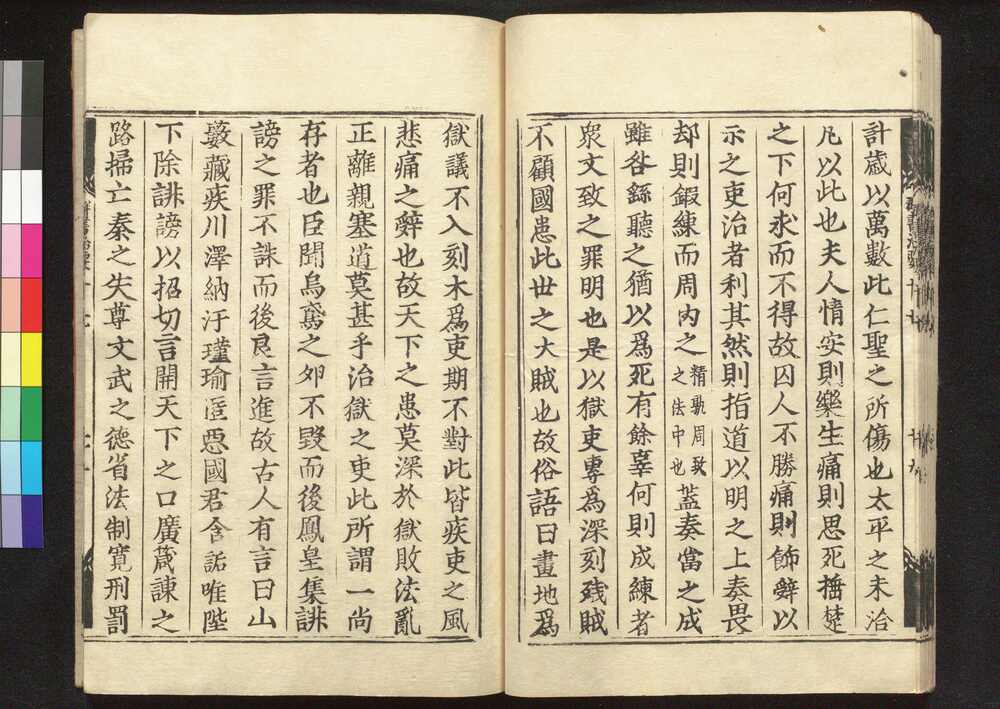 計歲以萬數此仁聖之所傷也太平之未洽
凡以此也夫人情安則樂生痛則思死捶楚
之下何求而不得故囚人不勝痛則飾辭以
示之吏治者利其然則指道以明之上奏畏
却則鍛練而周內之精熟周致之法中也蓋奏當之成
雖咎繇聽之猶以爲死有餘辜何則成練者
衆文致之罪明也是以獄吏專爲深刻殘賊
不顧國患此世之大賊也故俗語曰畫地爲
獄議不入刻木爲吏期不對此皆疾吏之風
悲痛之辭也故天下之患莫深於獄敗法亂
正離親塞道莫甚乎治獄之吏此所謂一尚
存者也臣聞烏鳶之卵不毀而後鳳皇集誹
謗之罪不誅而後良言進故古人有言曰山
藪藏疾川澤納汙瑾瑜匿惡國君含詬唯陛
下除誹謗以招切言開天下之口廣箴諫之
路掃亡秦之失尊文武之德省法制寬刑罰